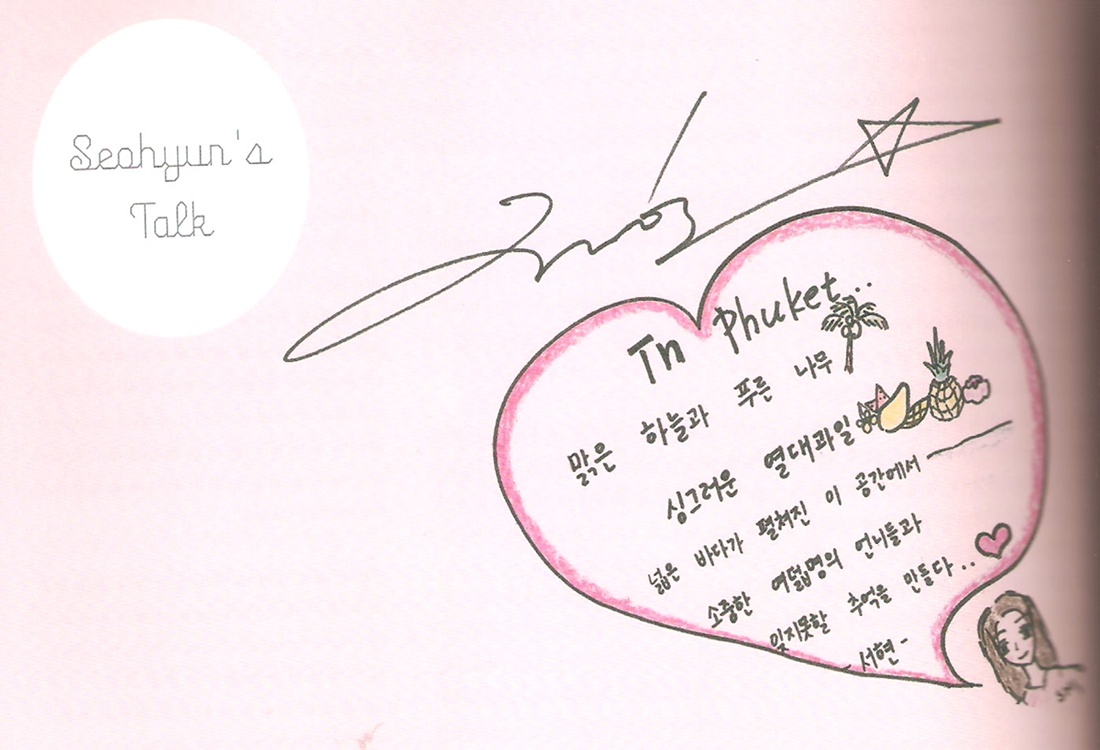 Seohyun's
Talk
In Phuket...
맑은 하늘과 푸른 나무
싱그러운 열대과일
넓은 바다가 펼쳐진 이 공간에서
소중한 여덟명의 언니들과
잊지못할 추억을 만들다..
서현-